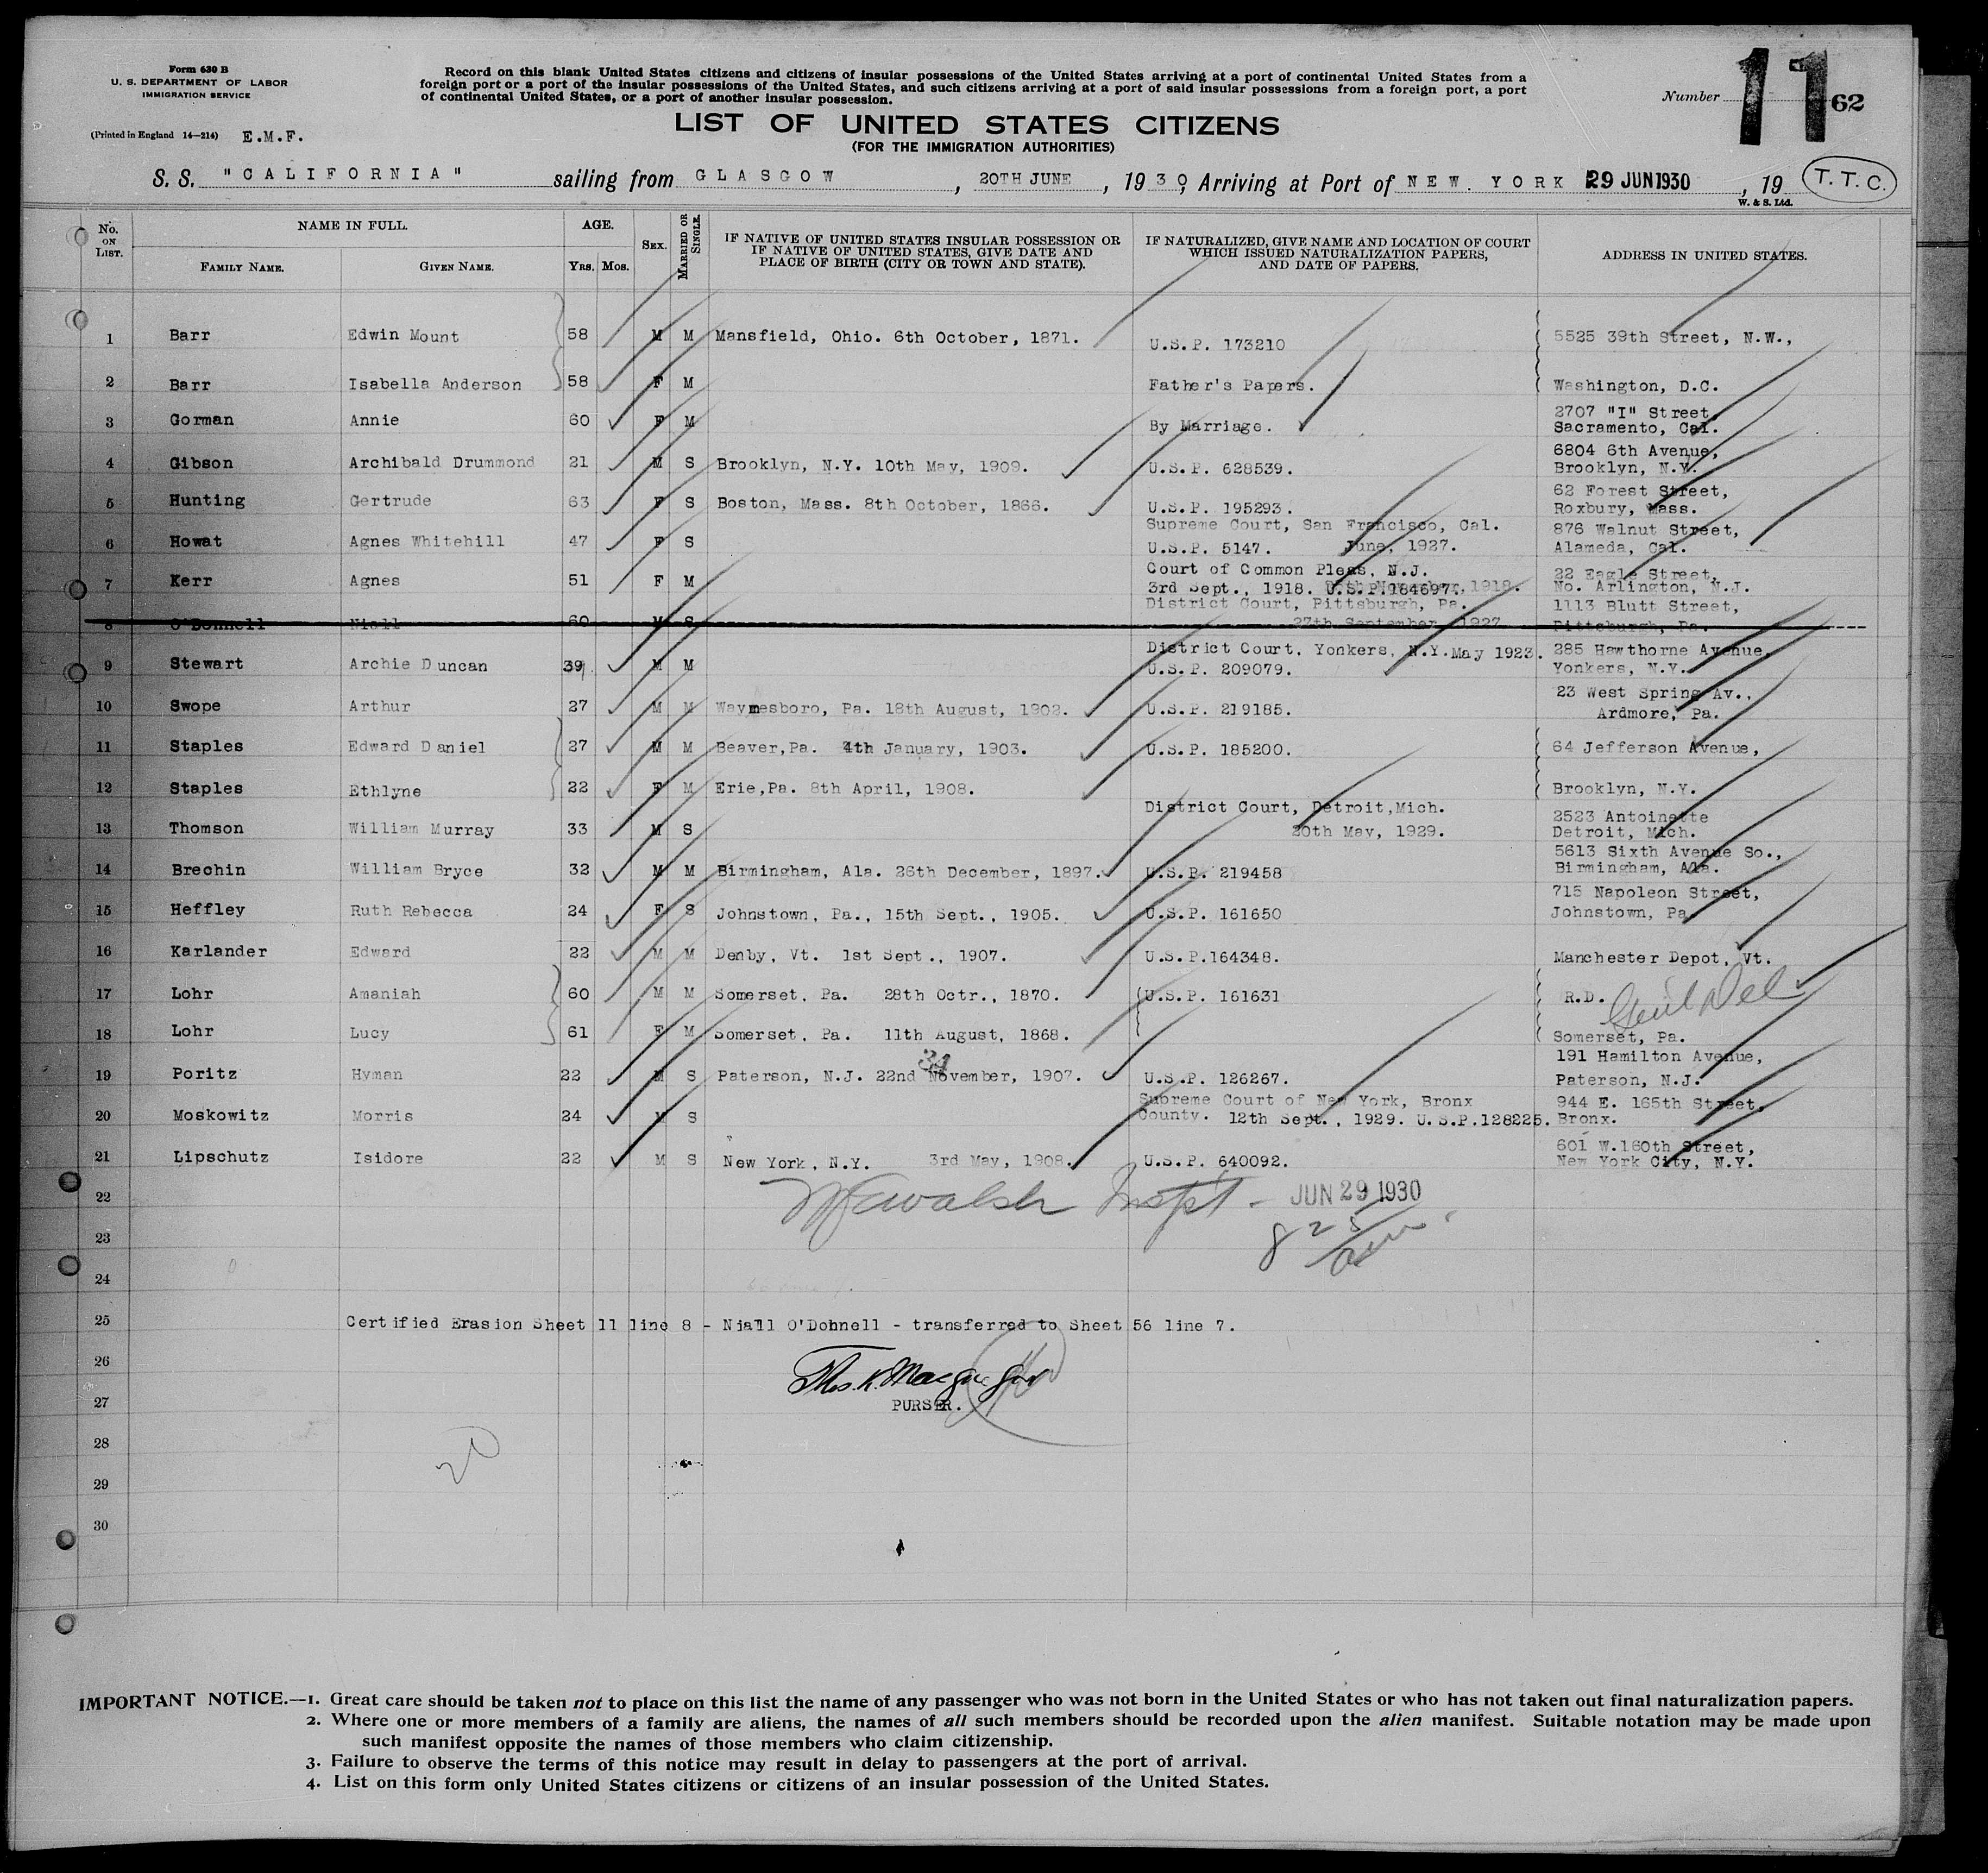 Form 630 B
U. S. DEPARTMENT OF LABOR
IMMIGRATION SERVICE
(Printed in England 14—214) E.M.F.
Record on this blank United States citizens and citizens of insular possessions of the United States arriving at a port of continental United States from a
foreign port or a port of the insular possessions of the United States, and such citizens arriving at a port of said insular possessions from a foreign port, a port
of continental United States, or a port of another insular possession.
Number 11 62
LIST OF UNITED STATES CITIZENS
(FOR THE IMMIGRATION AUTHORITIES)
S. S. "CALIFORNIA" sailing from GLASGOW, 20TH JUNE, 1930, Arriving at Port of NEW. YORK 29 JUN 1930, 19 T.T.C.
W. & S. Ltd.
No. ON LIST. NAME IN FULL. FAMILY NAME. GIVEN NAME. AGE. Yrs. Mos. SEX. MARRIED OR SINGLE. IF NATIVE OF UNITED STATES INSULAR POSSESSION OR IF NATIVE OF UNITED STATES, GIVE DATE AND PLACE OF BIRTH (CITY OR TOWN AND STATE). IF NATURALIZED, GIVE NAME AND LOCATION OF COURT WHICH ISSUED NATURALIZATION PAPERS, AND DATE OF PAPERS. ADDRESS IN UNITED STATES.
1 Barr Edwin Mount 58 M M Mansfield, Ohio. 6th October, 1871. U.S.P. 173210 5525 39th Street, N.W.,
2 Barr Isabella Anderson 58 F M Father's Papers. Washington, D.C.
3 Gorman Annie 60 F M By Marriage. 2707 "I" Street, Sacramento, Cal.
4 Gibson Archibald Drummond 21 M S Brooklyn, N.Y. 10th May, 1909. U.S.P. 628539. 6804 6th Avenue, Brooklyn, N.Y.
5 Hunting Gertrude 63 F S Boston, Mass. 8th October, 1866. U.S.P. 195293. 62 Forest Street, Roxbury, Mass.
6 Howat Agnes Whitehill 47 F S Supreme Court, San Francisco, Cal. U.S.P. 5147. June, 1927. 876 Walnut Street, Alameda, Cal.
7 Kerr Agnes 51 F M Court of Common Pleas, N.J. 3rd Sept., 1918. U.S.P.164697. 22 Eagle Street, No. Arlington, N.J.
8 O'Donnell Niall 60 M S District Court, Pittsburgh, Pa. 27th September, 1927 1113 Blutt Street, Pittsburgh, Pa.
9 Stewart Archie Duncan 39 M M District Court, Yonkers, N.Y. May 1923. U.S.P. 209079. 285 Hawthorne Avenue, Yonkers, N.Y.
10 Swope Arthur 27 M M Waynesboro, Pa. 18th August, 1902. U.S.P. 219185. 23 West Spring Av., Ardmore, Pa.
11 Staples Edward Daniel 27 M M Beaver, Pa. 4th January, 1903. U.S.P. 185200. 64 Jefferson Avenue,
12 Staples Ethlyne 22 F M Erie, Pa. 8th April, 1908. Brooklyn, N.Y.
13 Thomson William Murray 33 M S District Court, Detroit, Mich. 20th May, 1929. 2523 Antoinette Detroit, Mich.
14 Brechin William Bryce 32 M M Birmingham, Ala. 26th December, 1897. U.S.P. 219458 5613 Sixth Avenue So., Birmingham, Ala.
15 Heffley Ruth Rebecca 24 F S Johnstown, Pa., 15th Sept., 1905. U.S.P. 161650 715 Napoleon Street, Johnstown, Pa.
16 Karlander Edward 22 M M Denby, Vt. 1st Sept., 1907. U.S.P.164348. Manchester Depot, Vt.
17 Lohr Amaniah 60 M M Somerset, Pa. 28th Octr., 1870. U.S.P. 161631 R.D. Genl Del
18 Lohr Lucy 61 F M Somerset, Pa. 11th August, 1868. Somerset, Pa.
19 Poritz Hyman 22 M S Paterson, N.J. 22nd November, 1907. U.S.P. 126267. 191 Hamilton Avenue, Paterson, N.J.
20 Moskowitz Morris 24 M S Supreme Court of New York, Bronx County. 12th Sept., 1929. U.S.P.128225. 944 E. 165th Street, Bronx.
21 Lipschutz Isidore 22 M S New York, N.Y. 3rd May, 1908. U.S.P. 640092. 601 W.160th Street, New York City, N.Y.
22 Walsh Inspt - JUN 29 1930
23
24
25 Certified Erasion Sheet 11 line 8 - Niall O'Donnell - transferred to Sheet 56 line 7.
26 Thos. K. Macgregor
27 PURSER.
28 20
29
30
IMPORTANT NOTICE.—1. Great care should be taken not to place on this list the name of any passenger who was not born in the United States or who has not taken out final naturalization papers.
2. Where one or more members of a family are aliens, the names of all such members should be recorded upon the alien manifest. Suitable notation may be made upon
such manifest opposite the names of those members who claim citizenship.
3. Failure to observe the terms of this notice may result in delay to passengers at the port of arrival.
4. List on this form only United States citizens or citizens of an insular possession of the United States.